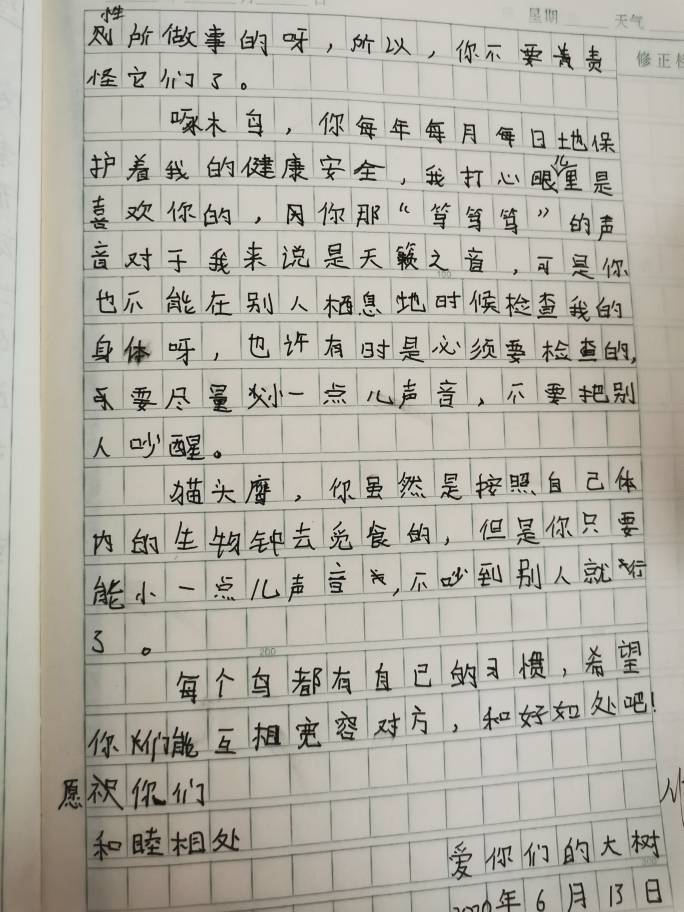 星期 天气
修正栏
性
别所做事的呀，所以，你不要责
怪它们了。
啄木鸟，你每年每月每日地保
护着我的健康安全，我打心眼儿里是
喜欢你的，因你那“笃笃笃”的声
音对于我来说是天籁之音，可是你
也不能在别人栖息地时候检查我的
身体呀，也许有时是必须要检查的，
要尽量小一点儿声音，不要把别
人吵醒。
猫头鹰，你虽然是按照自己体
内的生物钟去觅食的，但是你只要
能小一点儿声音，不吵到别人就行
了。
200
每个鸟都有自己的习惯，希望
你们能互相宽容对方，和好如处吧！
愿祝你们
和睦相处
爱你们的大树
2020年6月13日